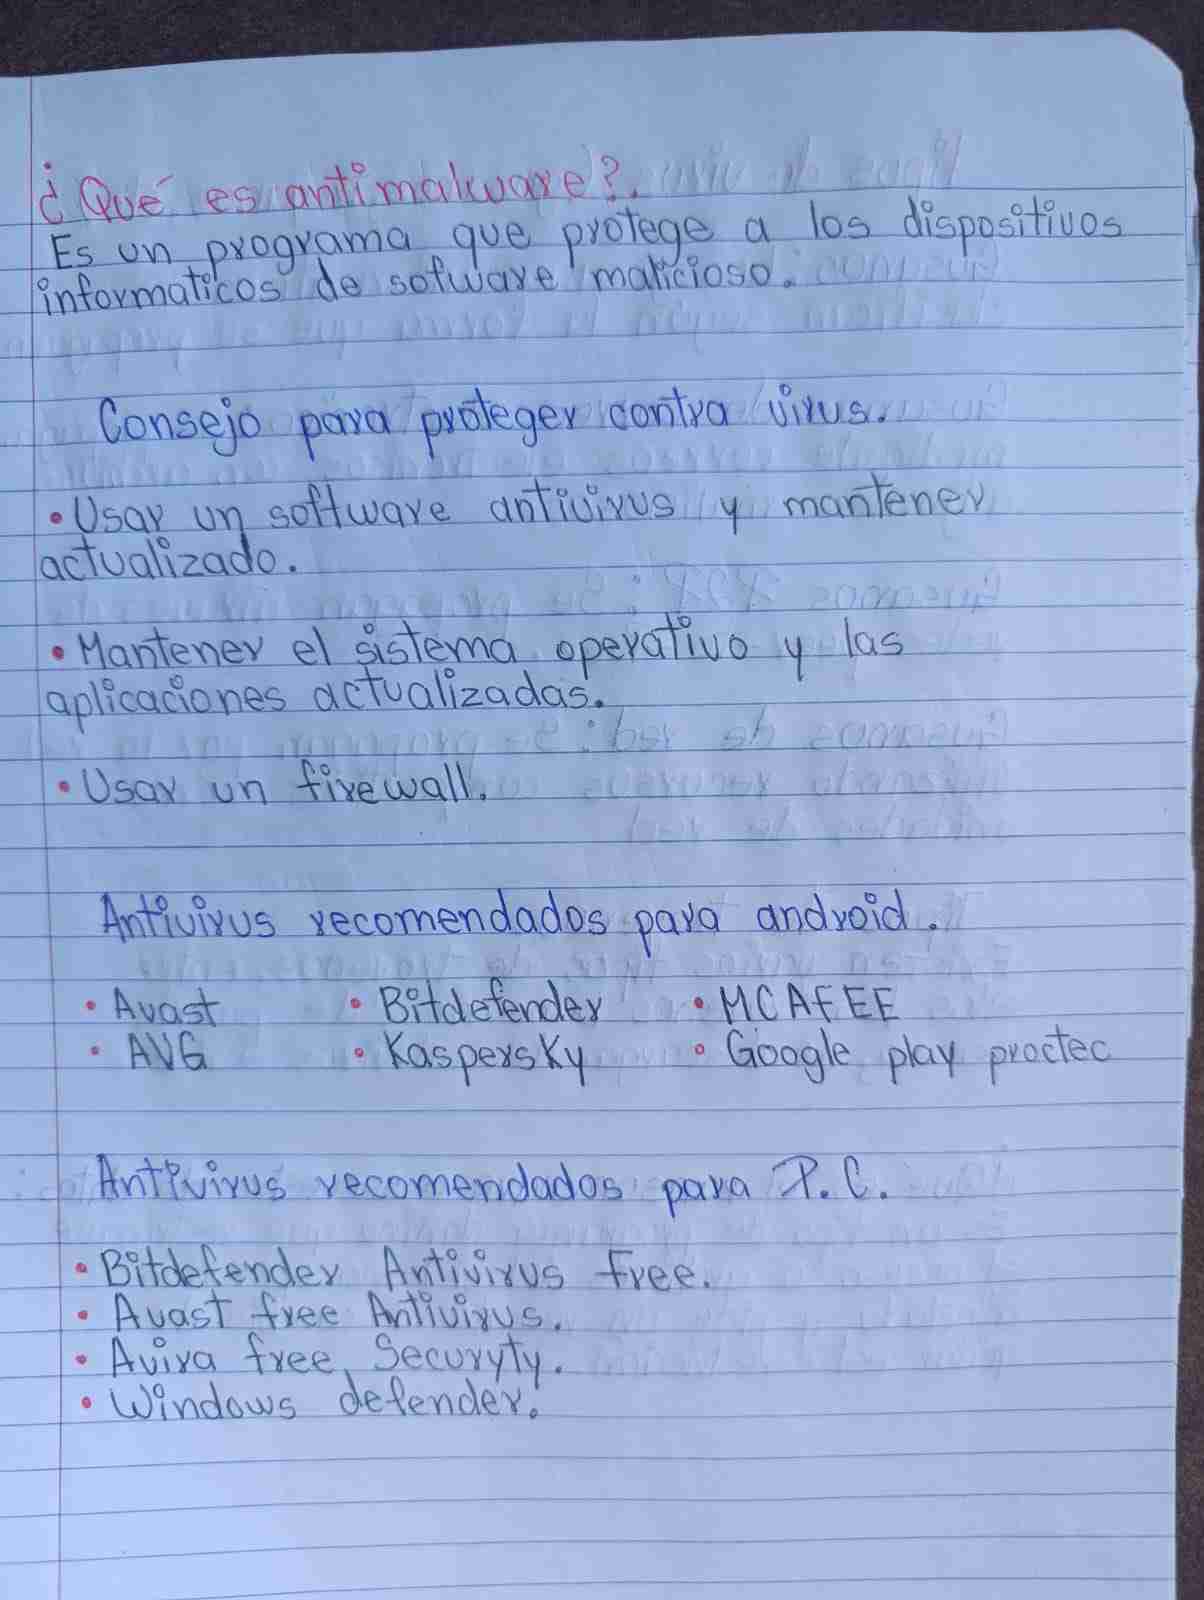 ¿Qué es antimalware?.
Es un programa que protege a los dispositivos
informaticos de sofware malicioso.
Consejo para proteger contra virus.
• Usar un software antivirus y mantener
actualizado.
• Mantener el sistema operativo y las
aplicaciones actualizadas.
• Usar un firewall.
Antivirus recomendados para android.
• Avast • Bitdefender • MCAFEE
• AVG • Kaspersky • Google play proctec
Antivirus recomendados para P.C.
• Bitdefender Antivirus Free.
• Avast free Antivirus.
• Avira free Securyty.
• Windows defender.